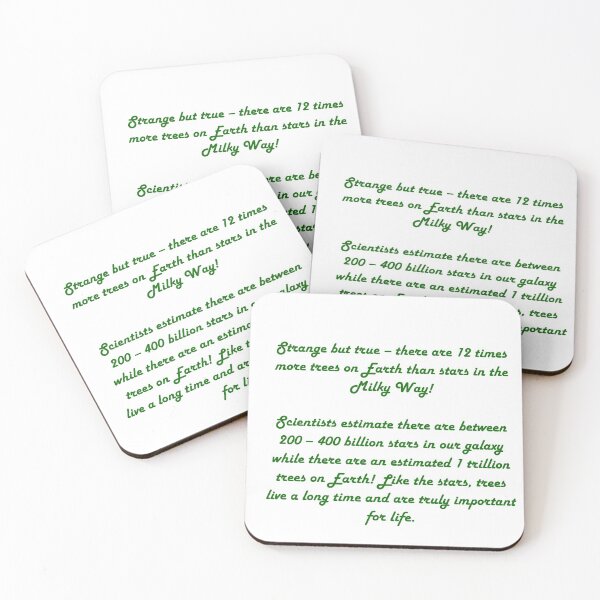 Strange but true – there are 12 times
more trees on Earth than stars in the
Milky Way!
Scientists are
in our
1
Strange but true – there are 12 times
more trees on Earth than stars in the
Milky Way!
Scientists estimate there are between
200 – 400 billion stars in our galaxy
while there are an estimated 1 trillion
trees on trees
important
Strange but true – there are 12 times
more trees on Earth than stars in the
Milky Way!
Scientists estimate there are between
200 – 400 billion stars in galaxy
while there are an
trees on Earth! Like
live a long time and
for
Strange but true – there are 12 times
more trees on Earth than stars in the
Milky Way!
Scientists estimate there are between
200 – 400 billion stars in our galaxy
while there are an estimated 1 trillion
trees on Earth! Like the stars, trees
live a long time and are truly important
for life.